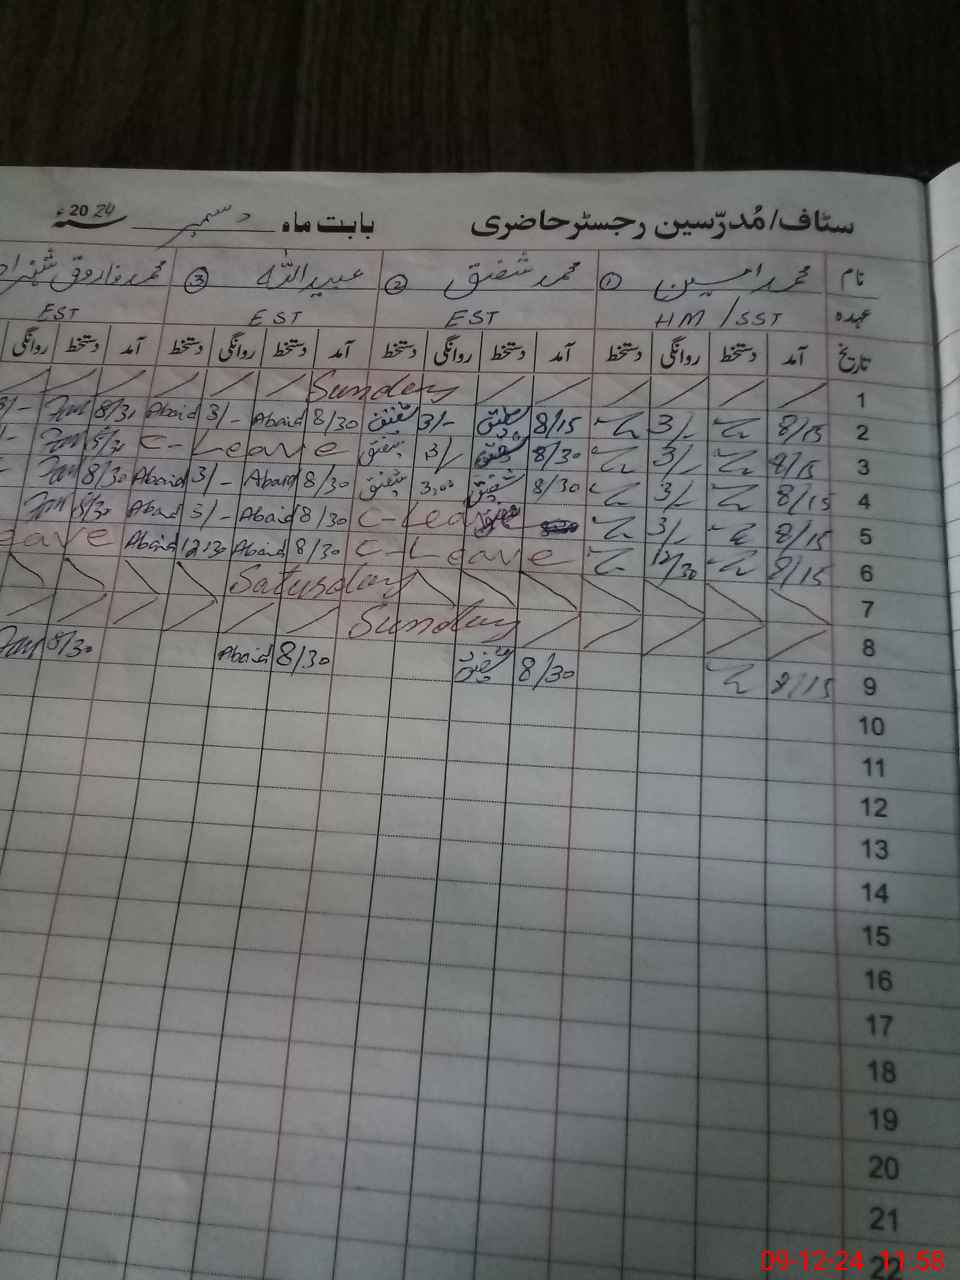 سٹاف/مُدرّسین رجسٹر حاضری بابت ماہ دسمبر سنہ 2024ء
نام محمد امین ① محمد شفیق ② عبیداللہ ③ محمد فاروق
عہدہ HM/SST EST EST EST
تاریخ آمد دستخط روانگی دستخط آمد دستخط روانگی دستخط آمد دستخط روانگی دستخط آمد دستخط روانگی
1 Sunday
2 8/15 3/- 8/15 شفیق 3/- شفیق 8/30 Abaid 3/- Abaid 8/31
3 8/15 3/- 8/30 شفیق 3/ شفیق C-Leave 8/30
4 8/15 3/- 8/30 شفیق 3,00 شفیق 8/30 Abaid 3/- Abaid 8/30
5 8/15 3/- C-Leave 8/30 Abaid 3/- Abaid 8/30
6 8/15 12/30 C-Leave 8/30 Abaid 12:30 Abaid eave
7 Saturday
8 Sunday
9 8/15 8/30 شفیق 8/30 Abaid 8/30
10
11
12
13
14
15
16
17
18
19
20
21
22
09-12-24 11:58